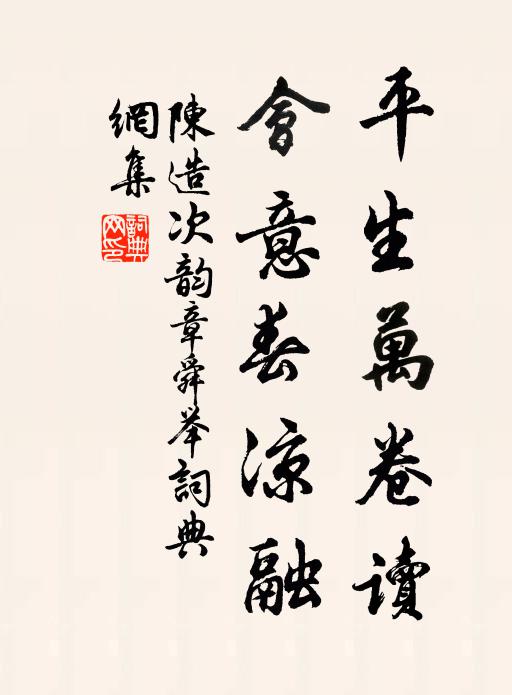 平生萬卷讀
會意春涼融
陳造次韵章舜举詞典
網集
詞典
网印